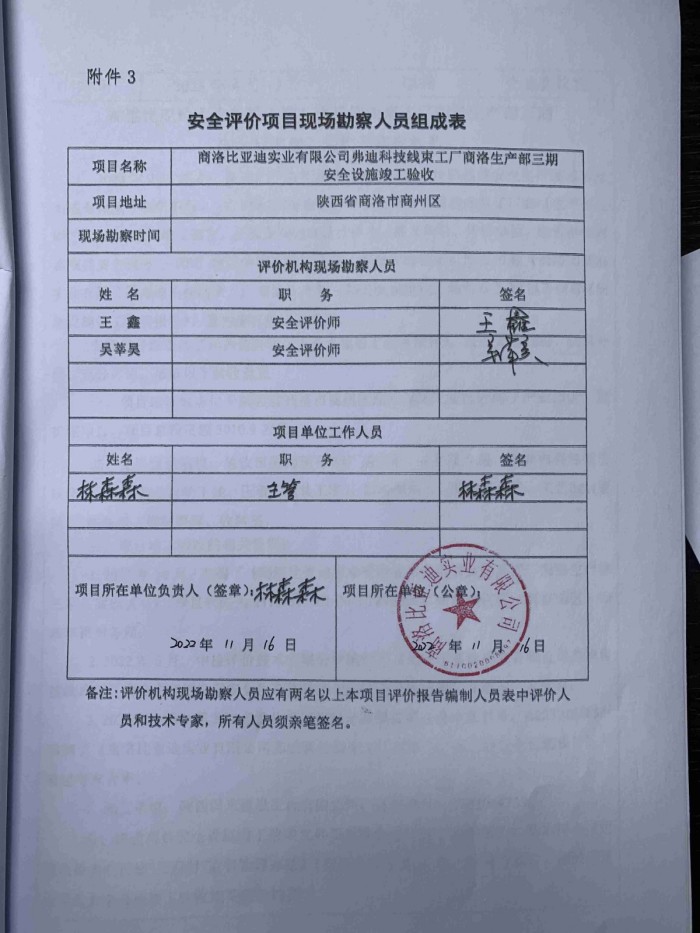 附件3
安全评价项目现场勘察人员组成表
项目名称
商洛比亚迪实业有限公司弗迪科技线束工厂商洛生产部三期
安全设施竣工验收
项目地址
陕西省商洛市商州区
现场勘察时间
评价机构现场勘察人员
姓 名 职 务 签名
王 鑫 安全评价师 王鑫
吴莘昊 安全评价师 吴莘昊
项目单位工作人员
姓名 职 务 签名
林森森 主管 林森森
项目所在单位负责人（签章）：林森森
项目所在单位（公章）：
商洛比亚迪实业有限公司
2022年 11月 16日
2022年 11月 16日
备注：评价机构现场勘察人员应有两名以上本项目评价报告编制人员表中评价人
员和技术专家，所有人员须亲笔签名。